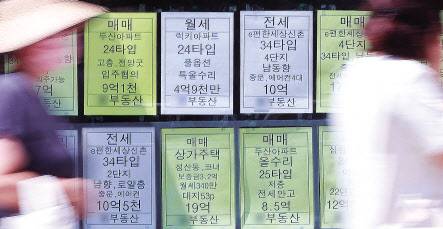 매매
두산아파트
24타입
고층, 전망굿
입주협의
9억1천
부동산
월세
럭키아파트
24타입
풀옵션
특올수리
4억9천만
부동산
전세
e편한세상신촌
34타입
4단지
남동향
중문, 에어컨4대
10억
부동산
매매
4단지
34타입
7억
부동산
전세
e편한세상신촌
34타입
2단지
남향, 로얄층
중문, 에어컨
10억5천
부동산
매매
상가주택
보증금3.2억
월세340만
대지53p
19억
부동산
매매
두산아파트
올수리
25타입
저층
전세안고
8.5억
부동산